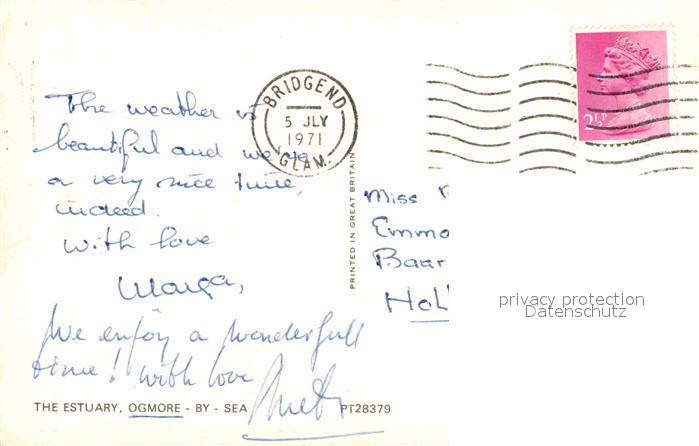 The weather is
beautiful and we've
a very nice time,
indeed.
With love
Marga,
We enjoy a wonderfull
time! With love
THE ESTUARY, OGMORE - BY - SEA PT28379
PRINTED IN GREAT BRITAIN
BRIDGEND
5 JLY
1971
GLAM.
2½P
Miss
Emmo
Baar
Holl
privacy protection
Datenschutz